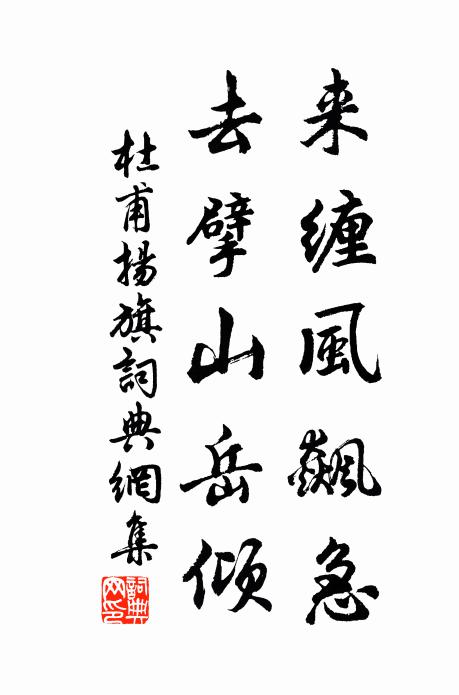 来缠風飙急
去擘山岳倾
杜甫揚旗詞典網集
詞典网印